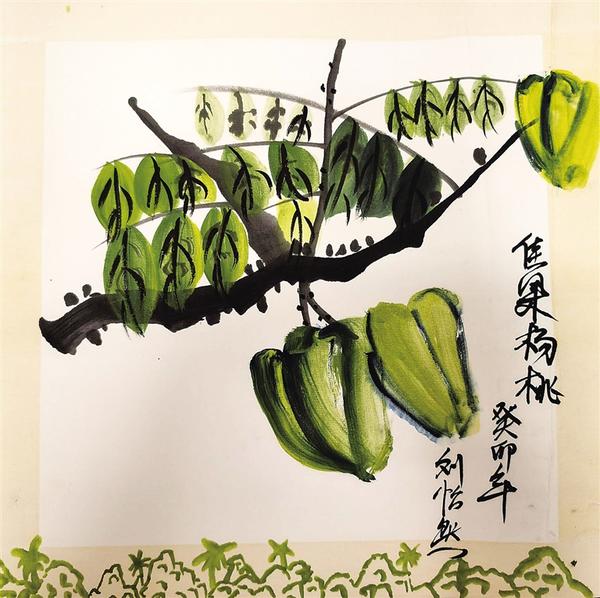 佳果杨桃
癸卯年
刘怡然